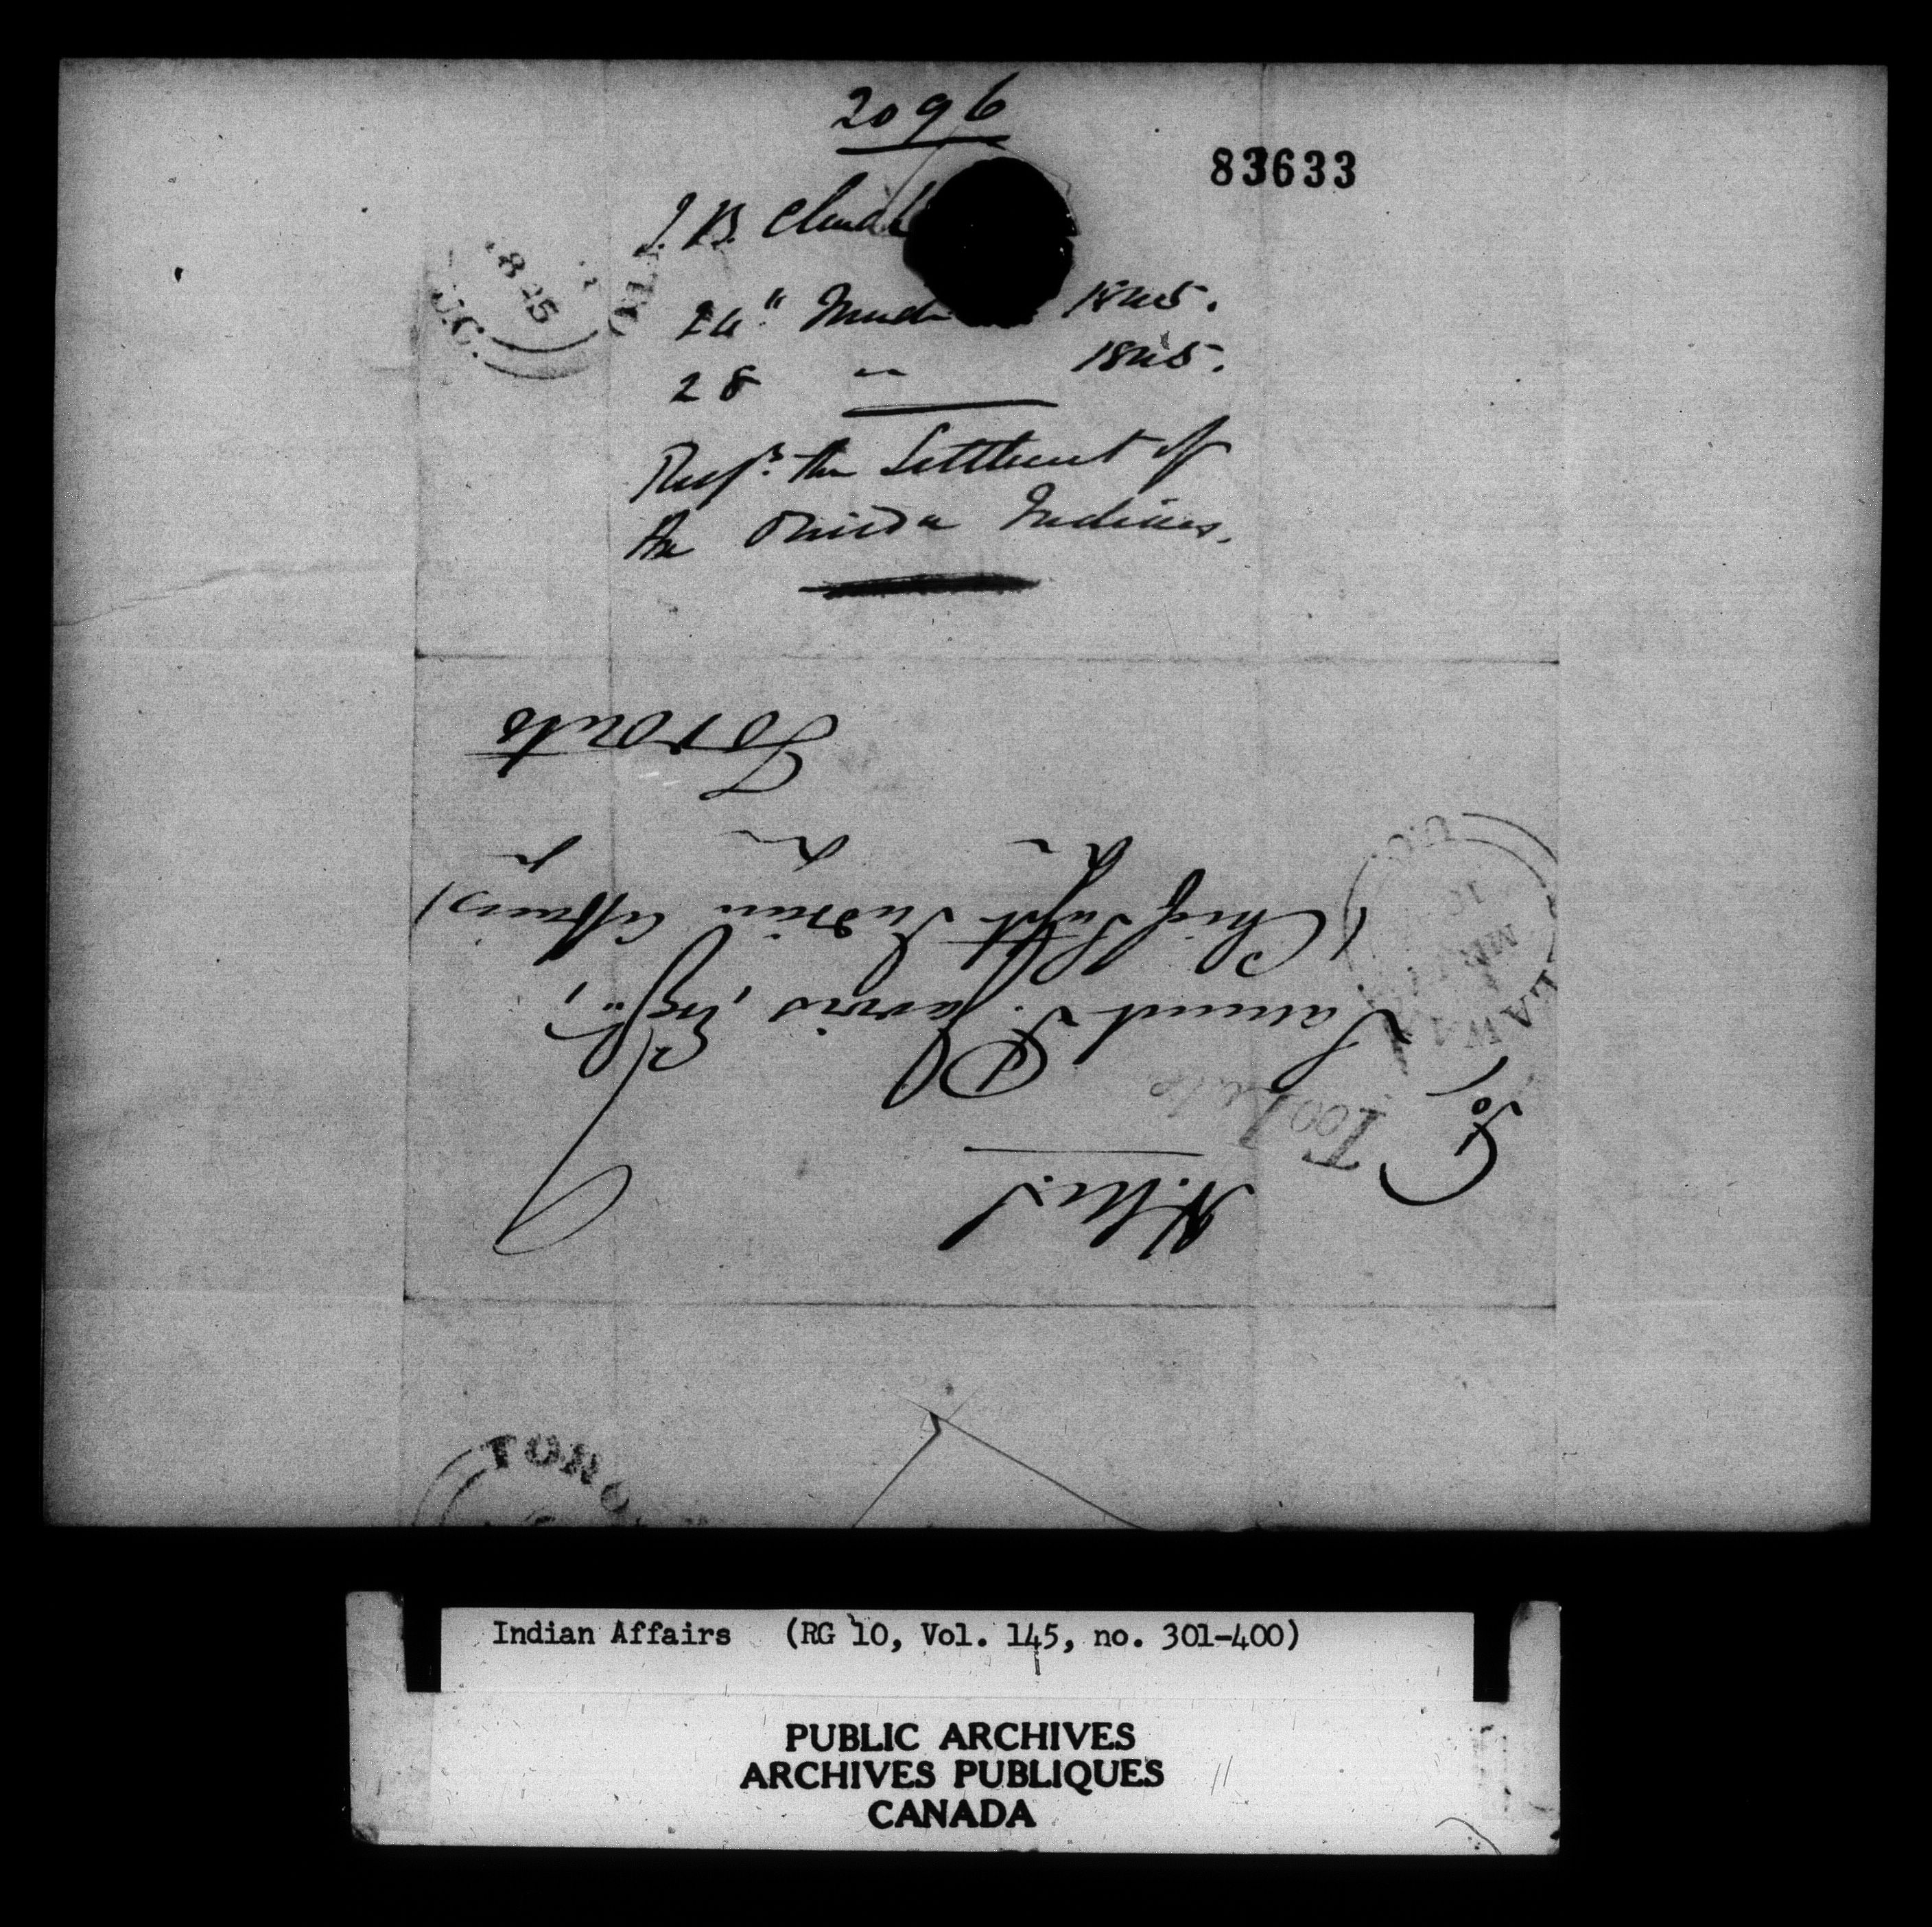 2096
83633
J. B. Clench
24" March 1845.
28 " 1845.
Resp.g the Settlement of
the Oneida Indians.
To,
Samuel P. Jarvis, Esqr.,
(Chief Supt. Indian Affairs)
&c &c &c
Toronto
Too Late
DELAWARE
U.C.
TORO
Indian Affairs (RG 10, Vol. 145, no. 301-400)
PUBLIC ARCHIVES
ARCHIVES PUBLIQUES
CANADA